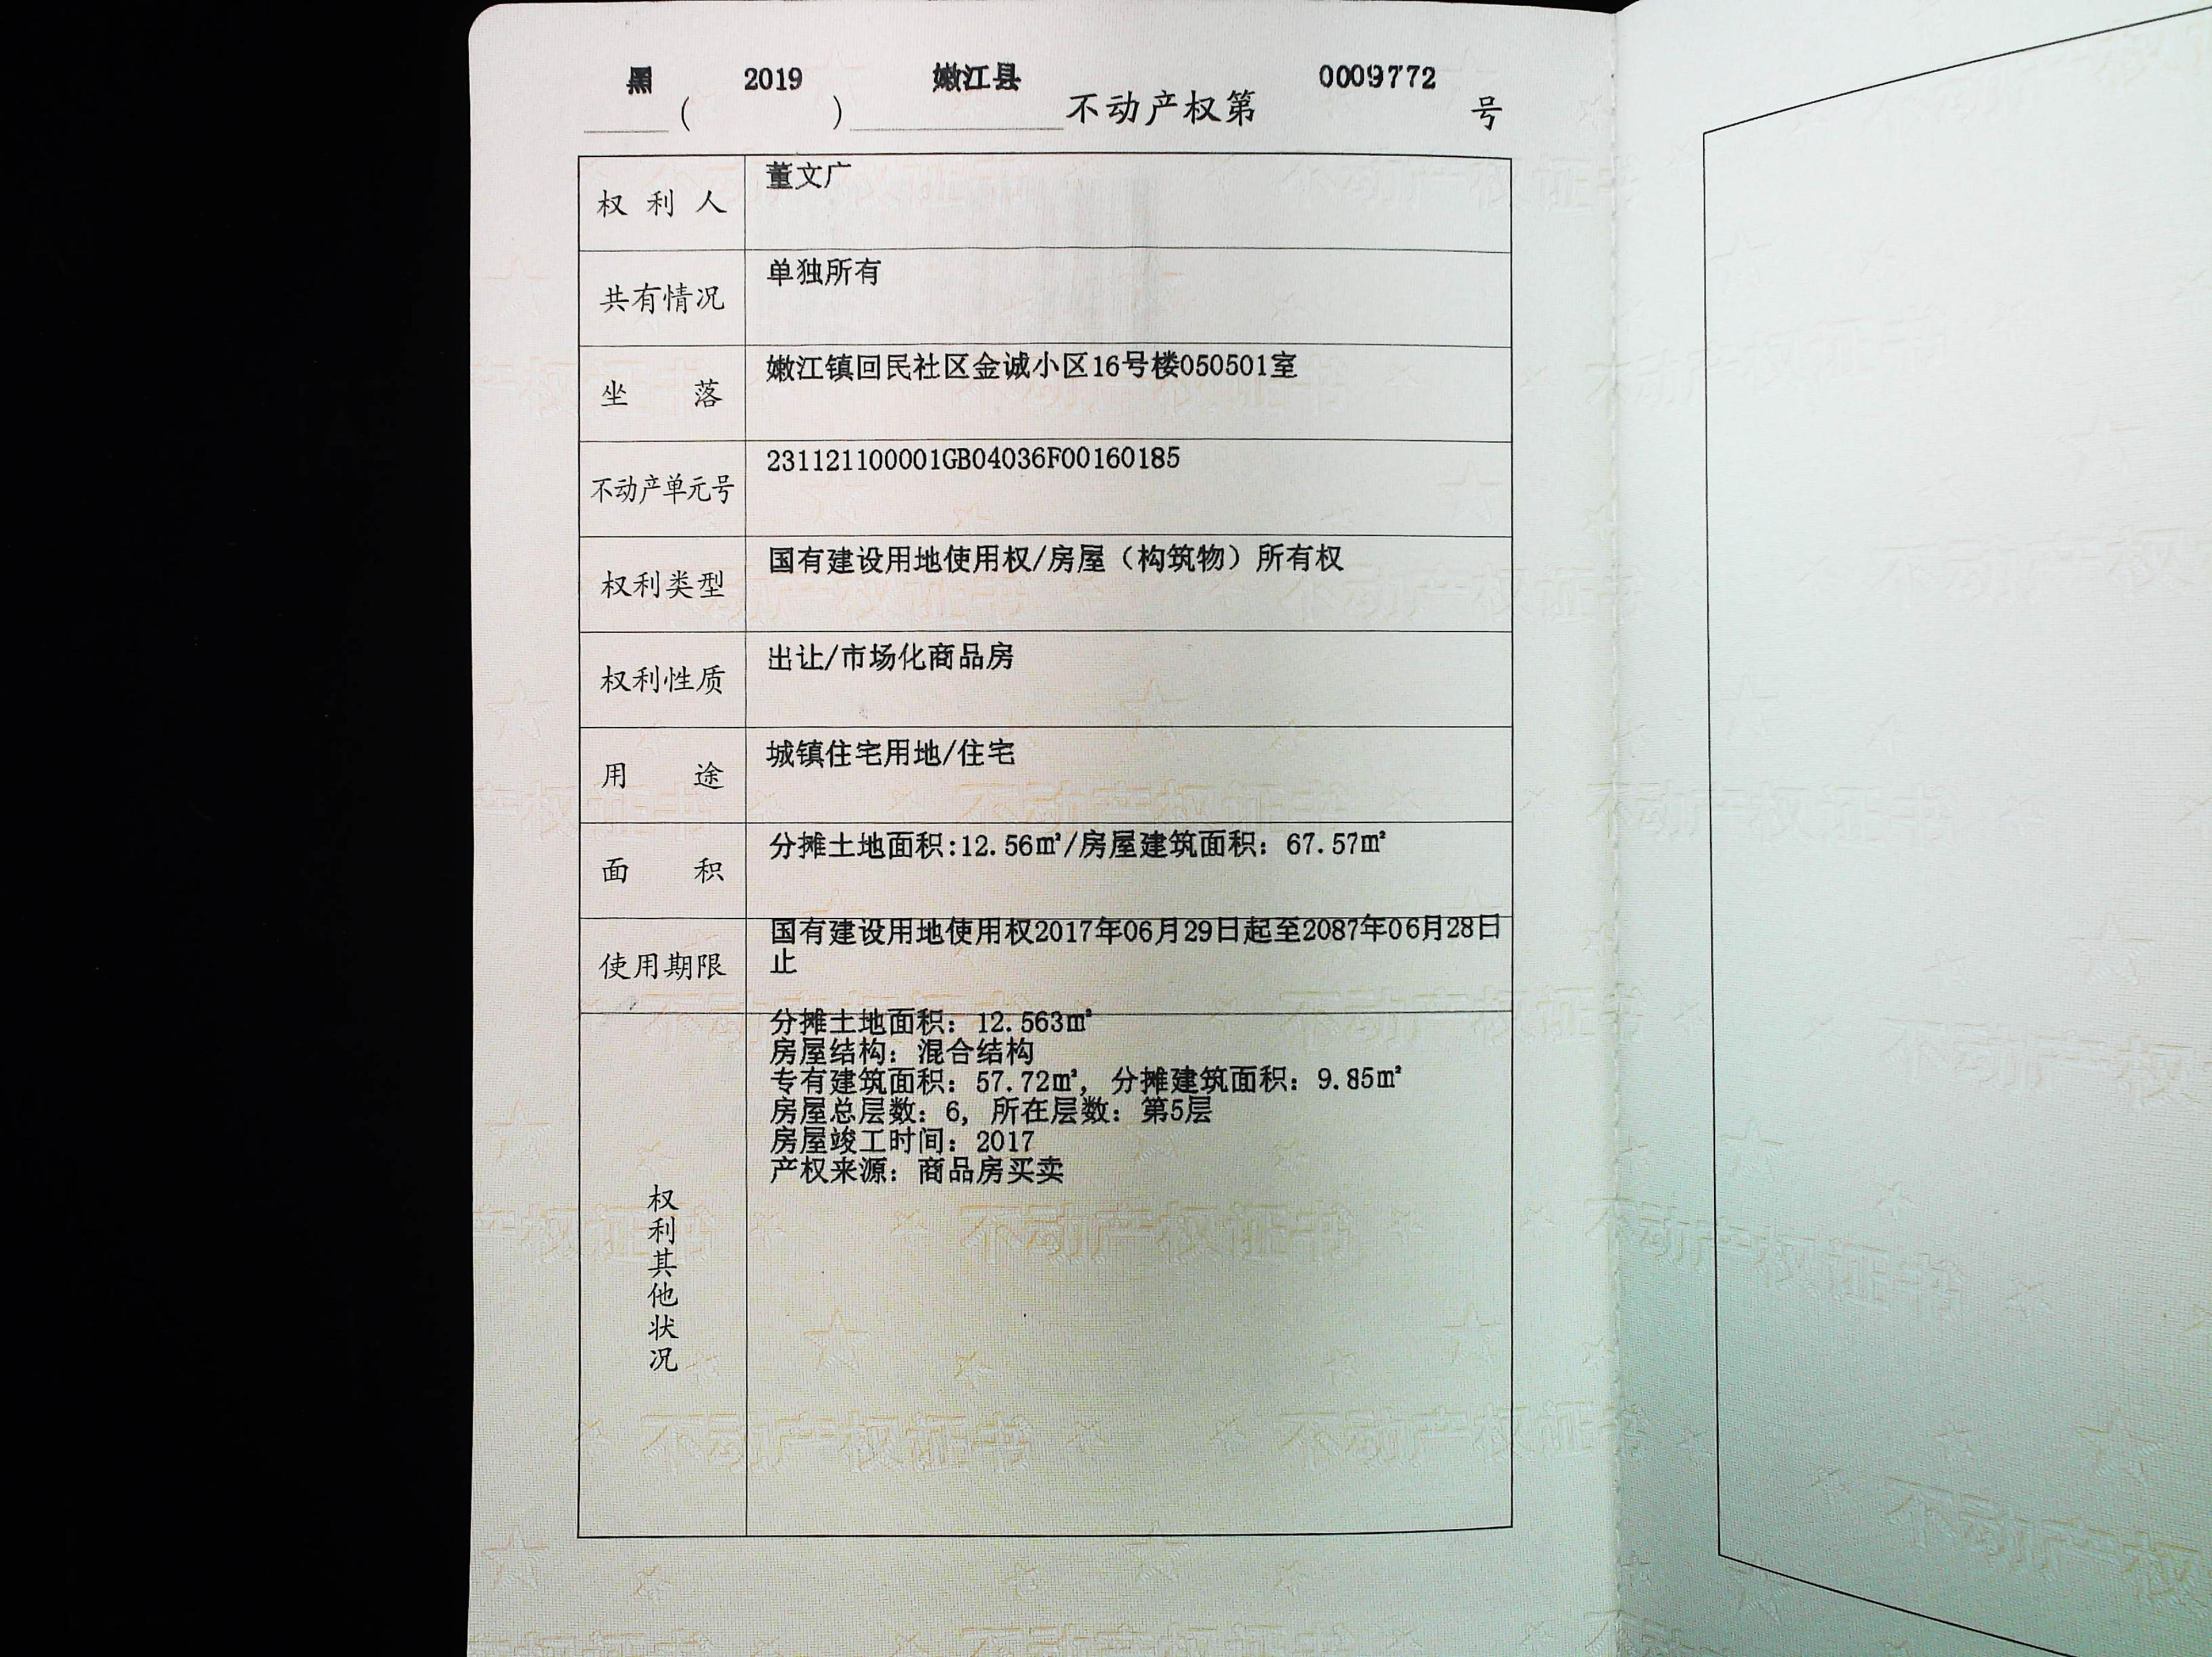 黑（2019）嫩江县不动产权第0009772号
权利人 董文广
共有情况 单独所有
坐落 嫩江镇回民社区金诚小区16号楼050501室
不动产单元号 231121100001GB04036F00160185
权利类型 国有建设用地使用权/房屋（构筑物）所有权
权利性质 出让/市场化商品房
用途 城镇住宅用地/住宅
面积 分摊土地面积:12.56㎡/房屋建筑面积：67.57㎡
使用期限 国有建设用地使用权2017年06月29日起至2087年06月28日
止
权利其他状况
分摊土地面积：12.563㎡
房屋结构：混合结构
专有建筑面积：57.72㎡，分摊建筑面积：9.85㎡
房屋总层数：6，所在层数：第5层
房屋竣工时间：2017
产权来源：商品房买卖